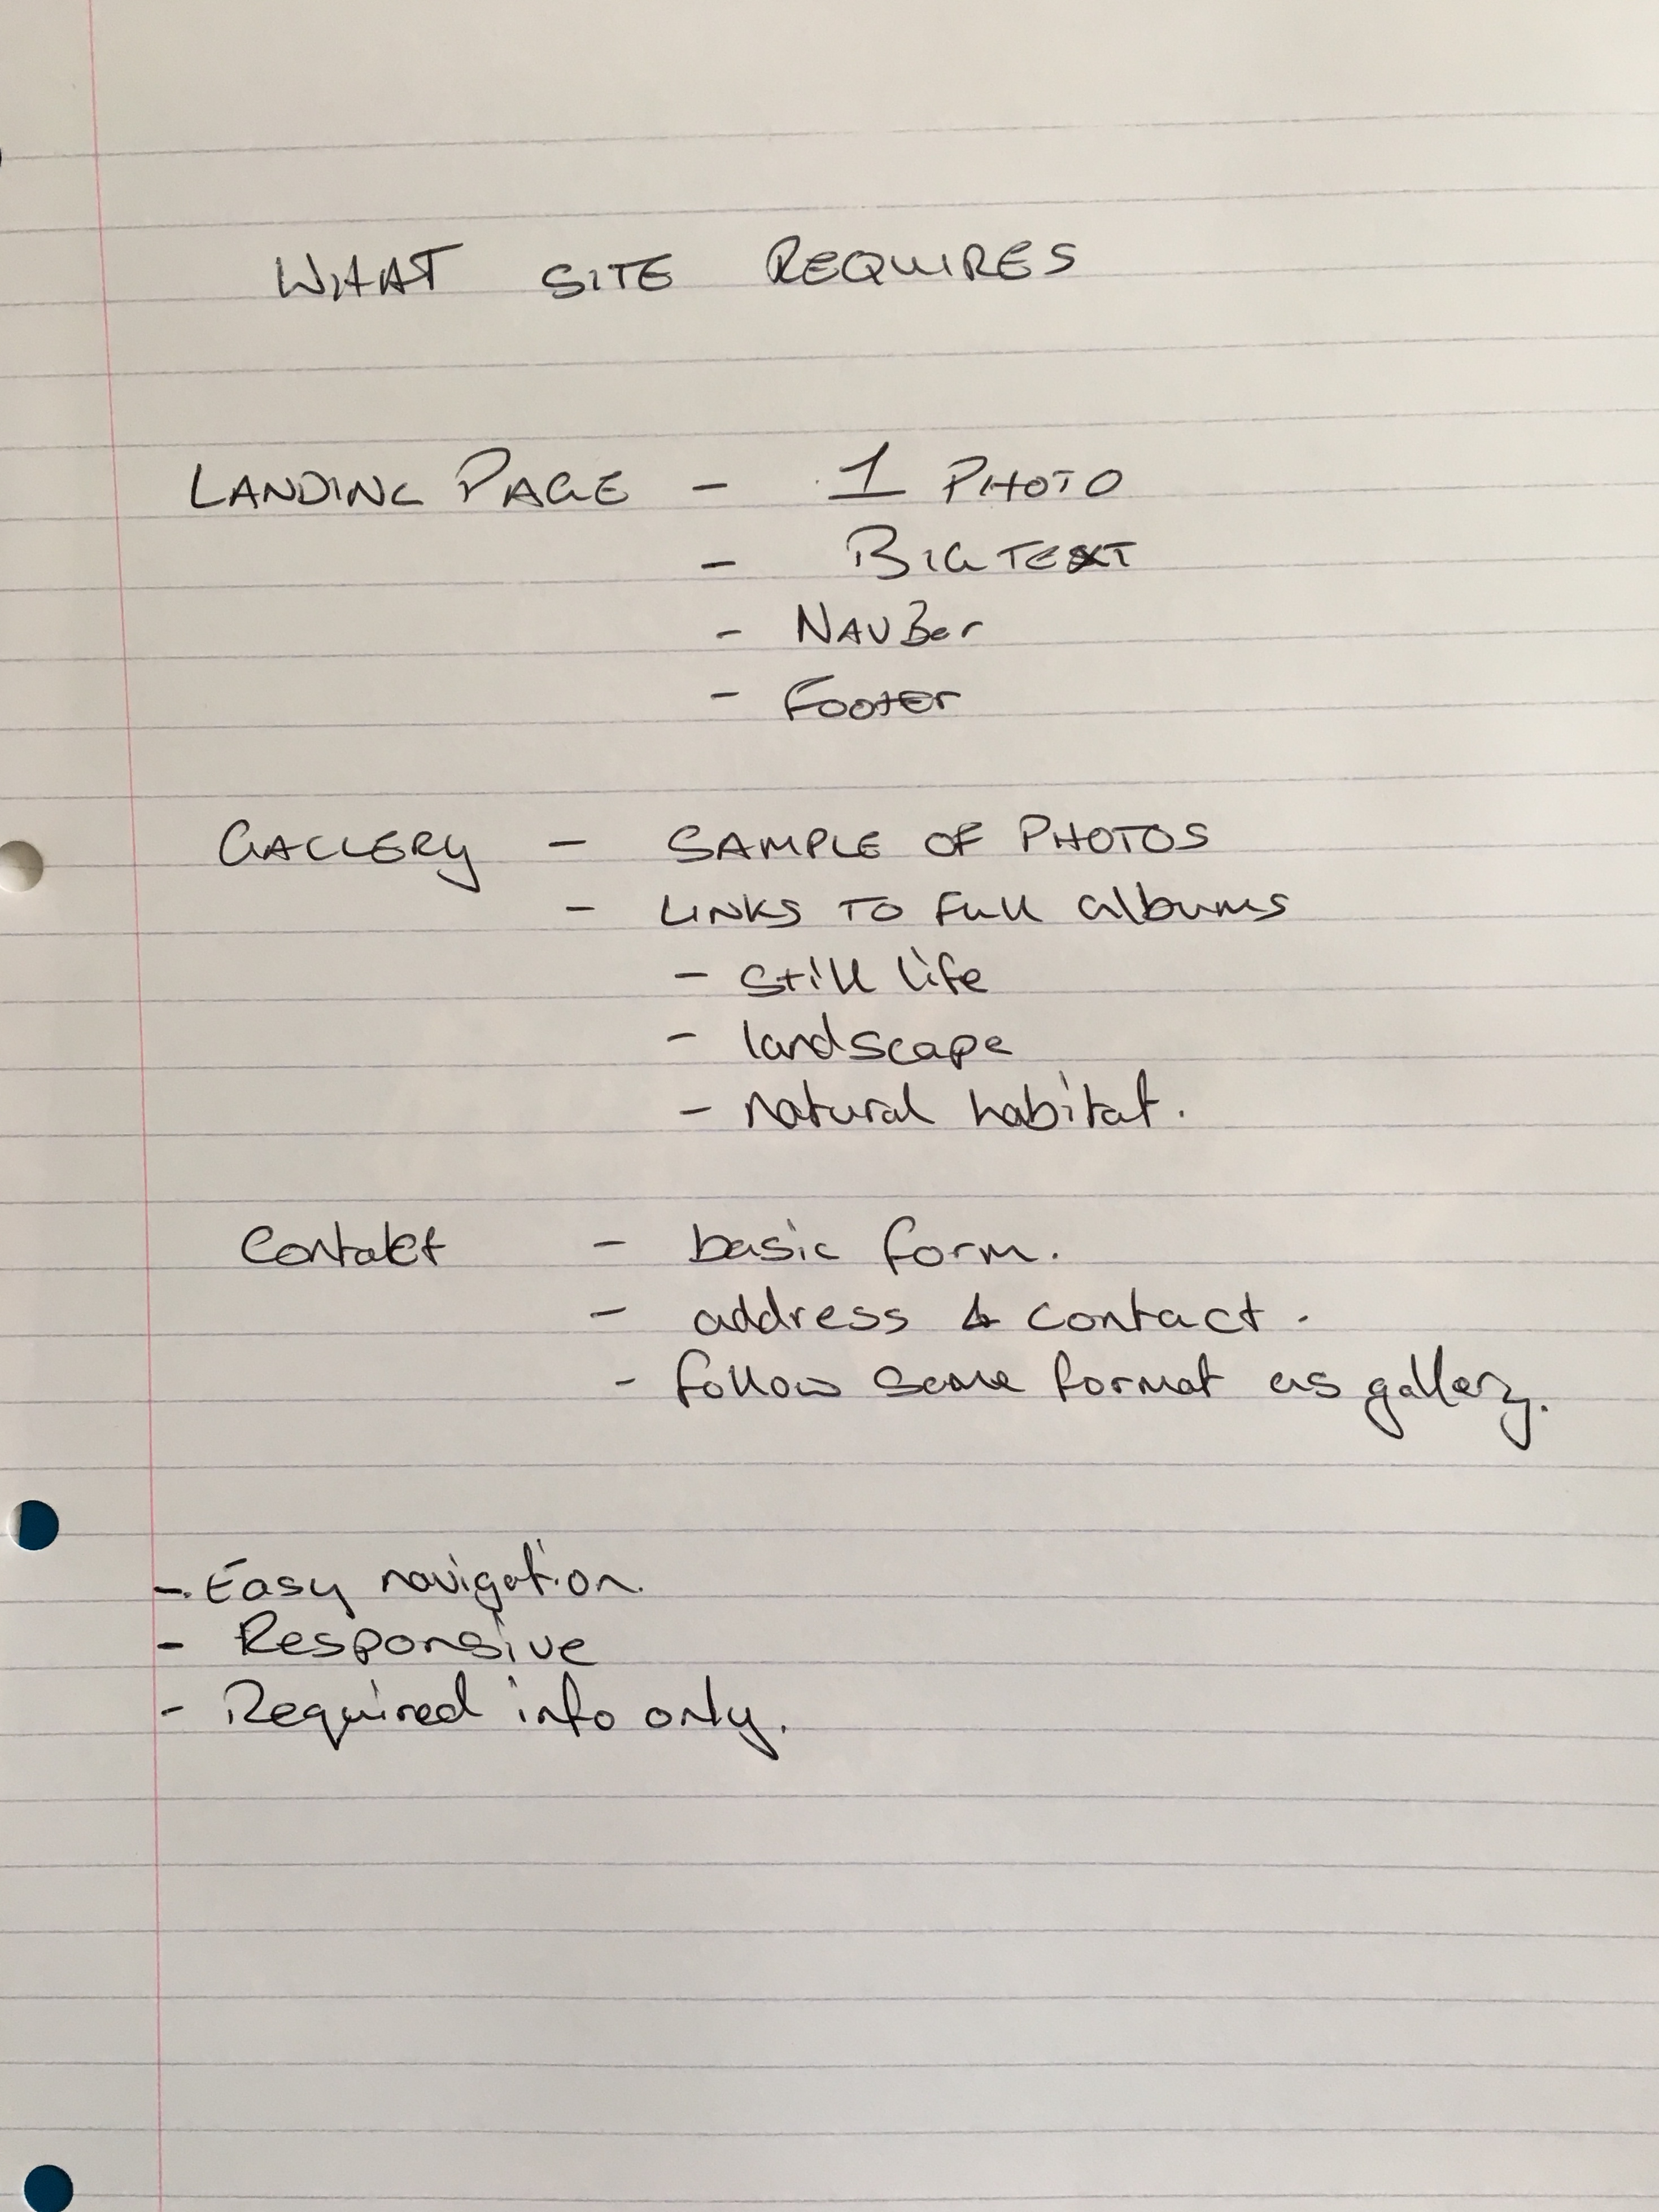 WHAT SITE REQUIRES
LANDING PAGE - 1 PHOTO
- BIG TEXT
- NAVBar
- FOOTER
GALLERY - SAMPLE OF PHOTOS
- LINKS TO FULL albums
- Still life
- landscape
- Natural habitat.
Contact - basic form.
- address & contact.
- follow same format as gallery.
- Easy navigation.
- Responsive
- Required info only.